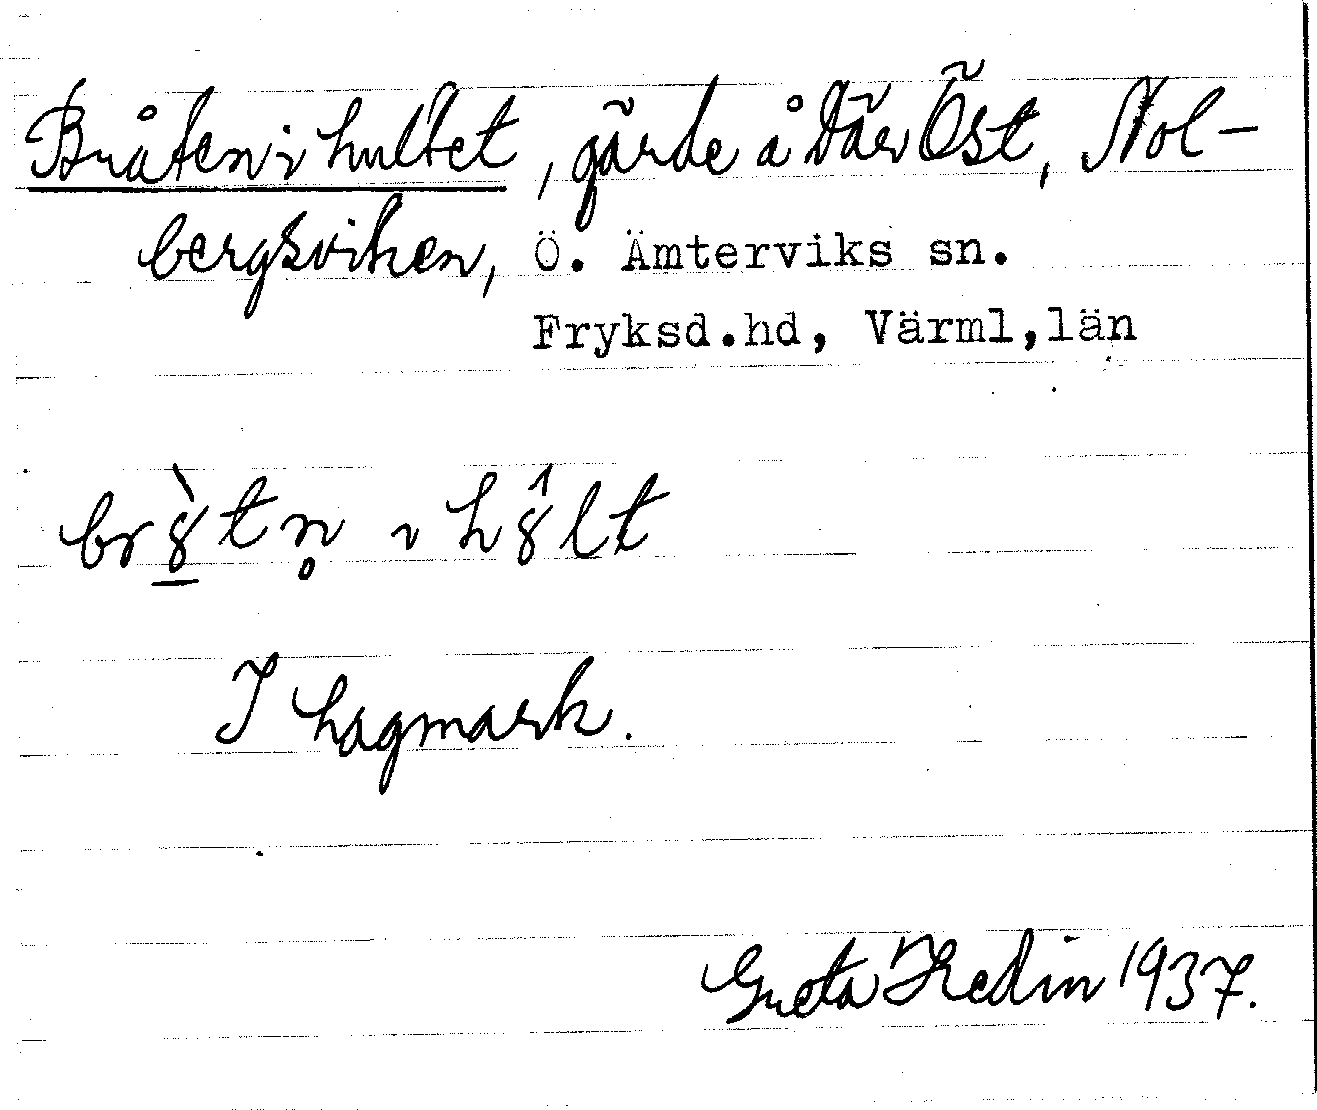 Bråten i hultet, gärde å Där Öst, Nol-
bergsviken, Ö. Ämterviks sn.
Fryksd.hd, Värml,län
br8̱̀tn̥ ı h8̂lt
I hagmark.
Greta Hedin 1937.